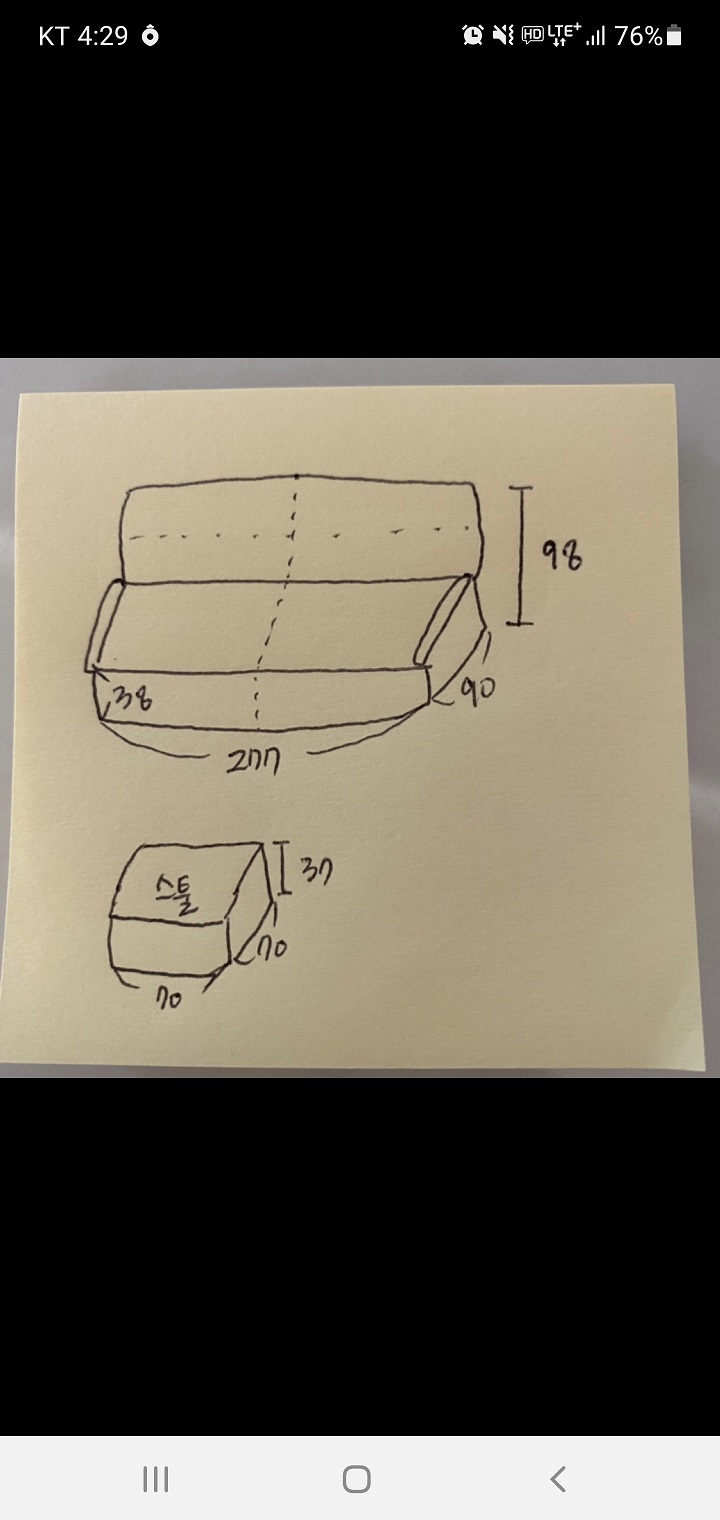 KT 4:29
HD LTE+ 76%
98
38
90
277
스툴
37
70
70